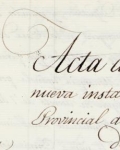 Acta d
nueva insta
Provincial d